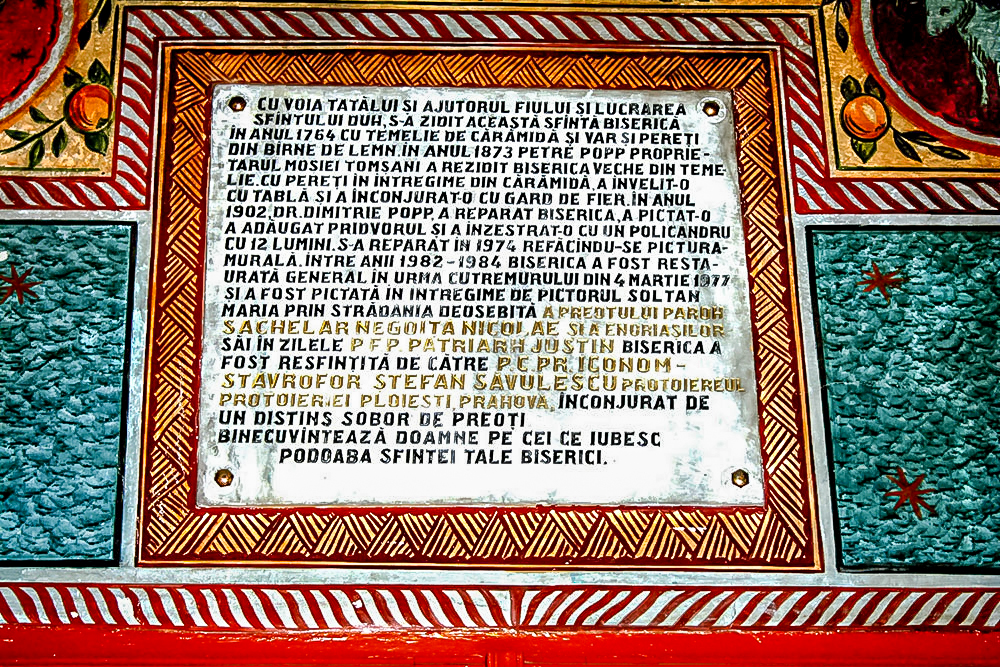 CU VOIA TATĂLUI ȘI AJUTORUL FIULUI ȘI LUCRAREA
SFÎNTULUI DUH, S-A ZIDIT ACEASTĂ SFÎNTĂ BISERICĂ
ÎN ANUL 1764 CU TEMELIE DE CĂRĂMIDĂ ȘI VAR ȘI PEREȚI
DIN BÎRNE DE LEMN. ÎN ANUL 1873 PETRE POPP PROPRIE-
TARUL MOSIEI TOMȘANI A REZIDIT BISERICA VECHE DIN TEME-
LIE. CU PEREȚI ÎN ÎNTREGIME DIN CĂRĂMIDĂ, A ÎNVELIT-O
CU TABLĂ ȘI A ÎNCONJURAT-O CU GARD DE FIER. ÎN ANUL
1902, DR. DIMITRIE POPP, A REPARAT BISERICA, A PICTAT-O
A ADĂUGAT PRIDVORUL ȘI A ÎNZESTRAT-O CU UN POLICANDRU
CU 12 LUMINI. S-A REPARAT ÎN 1974 REFĂCÎNDU-SE PICTURA-
MURALĂ. ÎNTRE ANII 1982-1984 BISERICA A FOST RESTA-
URATĂ GENERAL ÎN URMA CUTREMURULUI DIN 4 MARTIE 1977
ȘI A FOST PICTATĂ ÎN INTREGIME DE PICTORUL SOLTAN
MARIA PRIN STRĂDANIA DEOSEBITĂ A PREOTULUI PAROH
SACHELAR NEGOIȚA NICOLAE ȘI A ENORIAȘILOR
SĂI ÎN ZILELE P.F.P. PATRIARH JUSTIN BISERICA A
FOST RESFINȚITĂ DE CĂTRE P.C.PR. ICONOM-
STAVROFOR STEFAN SĂVULESCU PROTOIEREUL
PROTOIERIEI PLOIEȘTI PRAHOVA, ÎNCONJURAT DE
UN DISTINS SOBOR DE PREOȚI
BINECUVÎNTEAZĂ DOAMNE PE CEI CE IUBESC
PODOABA SFINTEI TALE BISERICI.